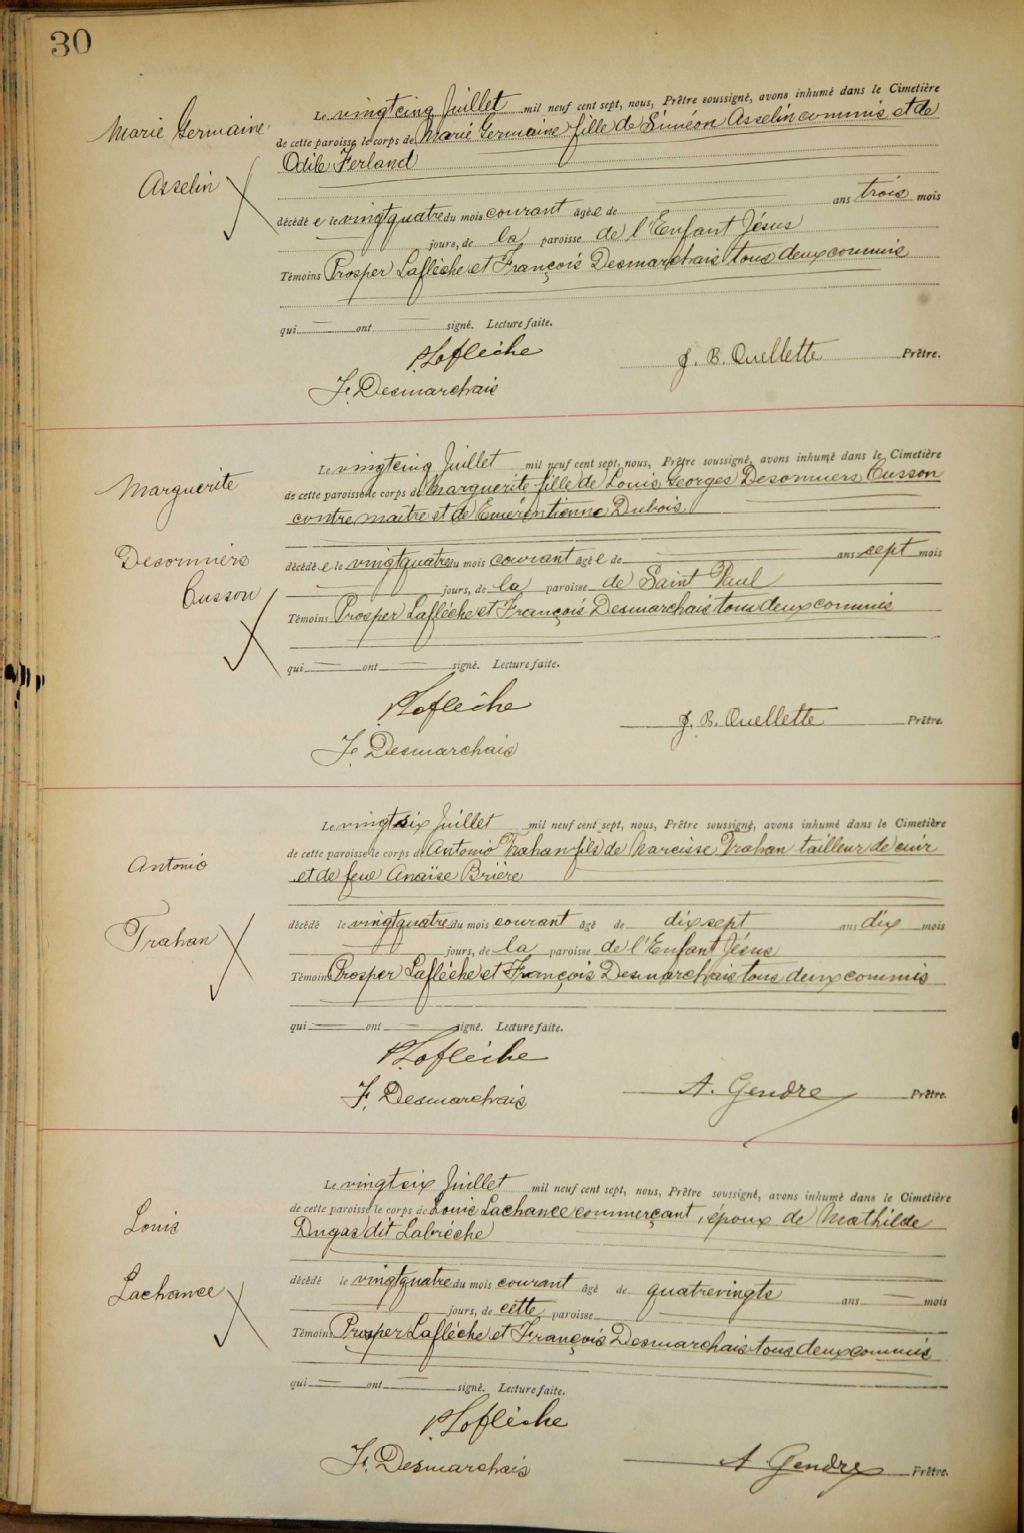 30
Le vingtcinq Juillet mil neuf cent sept, nous, Prêtre soussigné, avons inhumé dans le Cimetière
Marie Germaine
de cette paroisse le corps de Marie Germaine fille de Siméon Asselin commis et de
Odile Ferland
Asselin
décédé e le vingtquatre du mois courant âgé e de ans trois mois
jours, de la paroisse de l'Enfant Jésus
Témoins Prosper Laflèche et François Desmarchais tous deux commis
qui ont signé. Lecture faite.
P. Laflèche
J. B. Ouellette Prêtre.
F. Desmarchais
Le vingtcinq Juillet mil neuf cent sept, nous, Prêtre soussigné, avons inhumé dans le Cimetière
Marguerite
de cette paroisse le corps de Marguerite fille de Louis Georges Desormiers Cusson
contre maître et de Emérentienne Dubois
Desormiers
décédé e le vingtquatre du mois courant âgé e de ans sept mois
Cusson
jours, de la paroisse de Saint Paul
Témoins Prosper Laflèche et François Desmarchais tous deux commis
qui ont signé. Lecture faite.
P. Laflèche
J. B. Ouellette Prêtre.
F. Desmarchais
Le vingtsix Juillet mil neuf cent sept, nous, Prêtre soussigné, avons inhumé dans le Cimetière
Antonio
de cette paroisse le corps de Antonio Trahan fils de Narcisse Trahan tailleur de cuir
et de feue Anaise Brière
Trahan
décédé le vingtquatre du mois courant âgé de dix sept ans dix mois
jours, de la paroisse de l'Enfant Jésus
Témoins Prosper Laflèche et François Desmarchais tous deux commis
qui ont signé. Lecture faite.
P. Laflèche
F. Desmarchais
A. Gendre Prêtre.
Le vingtsix Juillet mil neuf cent sept, nous, Prêtre soussigné, avons inhumé dans le Cimetière
Louis
de cette paroisse le corps de Louis Lachance commerçant, époux de Mathilde
Dugas dit Labrèche
Lachance
décédé le vingtquatre du mois courant âgé de quatrevingts ans mois
jours, de cette paroisse
Témoins Prosper Laflèche et François Desmarchais tous deux commis
qui ont signé. Lecture faite.
P. Laflèche
F. Desmarchais
A. Gendre Prêtre.